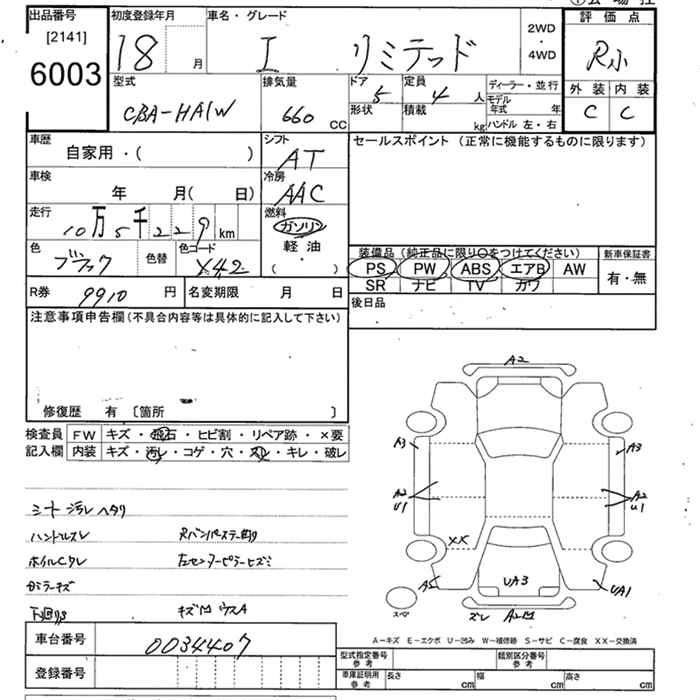 出品番号
[2141]
6003
初度登録年月
18 月
車名・グレード
I リミテッド
2WD
・
4WD
評価点
R小
外装 内装
C C
型式
CBA-HA1W
排気量
660 CC
ドア 5
形状
定員 4 人
積載 kg
ディーラー・並行
モデル
年式 年
ハンドル 左・右
車歴
自家用・( )
シフト
AT
セールスポイント (正常に機能するものに限ります)
車検
年 月( 日)
冷房
AAC
走行
10万5千229km
燃料
ガソリン
・
軽油
・
( )
色
ブラック
色替
色コード
X42
装備品 (純正品に限り○をつけてください)
PS PW ABS エアB AW
SR ナビ TV カワ
新車保証書
有・無
R券 9910 円
名変期限 月 日
後日品
注意事項申告欄 (不具合内容等は具体的に記入して下さい)
修復歴 有 〔箇所 〕
検査員
記入欄
FW キズ・飛石・ヒビ割・リペア跡・×要
内装 キズ・汚レ・コゲ・穴・スレ・キレ・破レ
シート汚レヘタリ
ハンドルスレ
Rバンパーステー曲り
ホイルCタレ
左センターピラーヒズミ
下回りS
キズ凹 ウスA
A2
A3
A3
A2
U1
A2
U1
XX
A5
UA3
UA1
スペア
ズレ
A2凹
A-キズ E-エクボ U-凹み W-補修跡 S-サビ C-腐食 XX-交換済
車台番号 0034407
登録番号
型式指定番号
参考
類別区分番号
参考
車庫証明用
参考
長さ cm
幅 cm
高さ cm